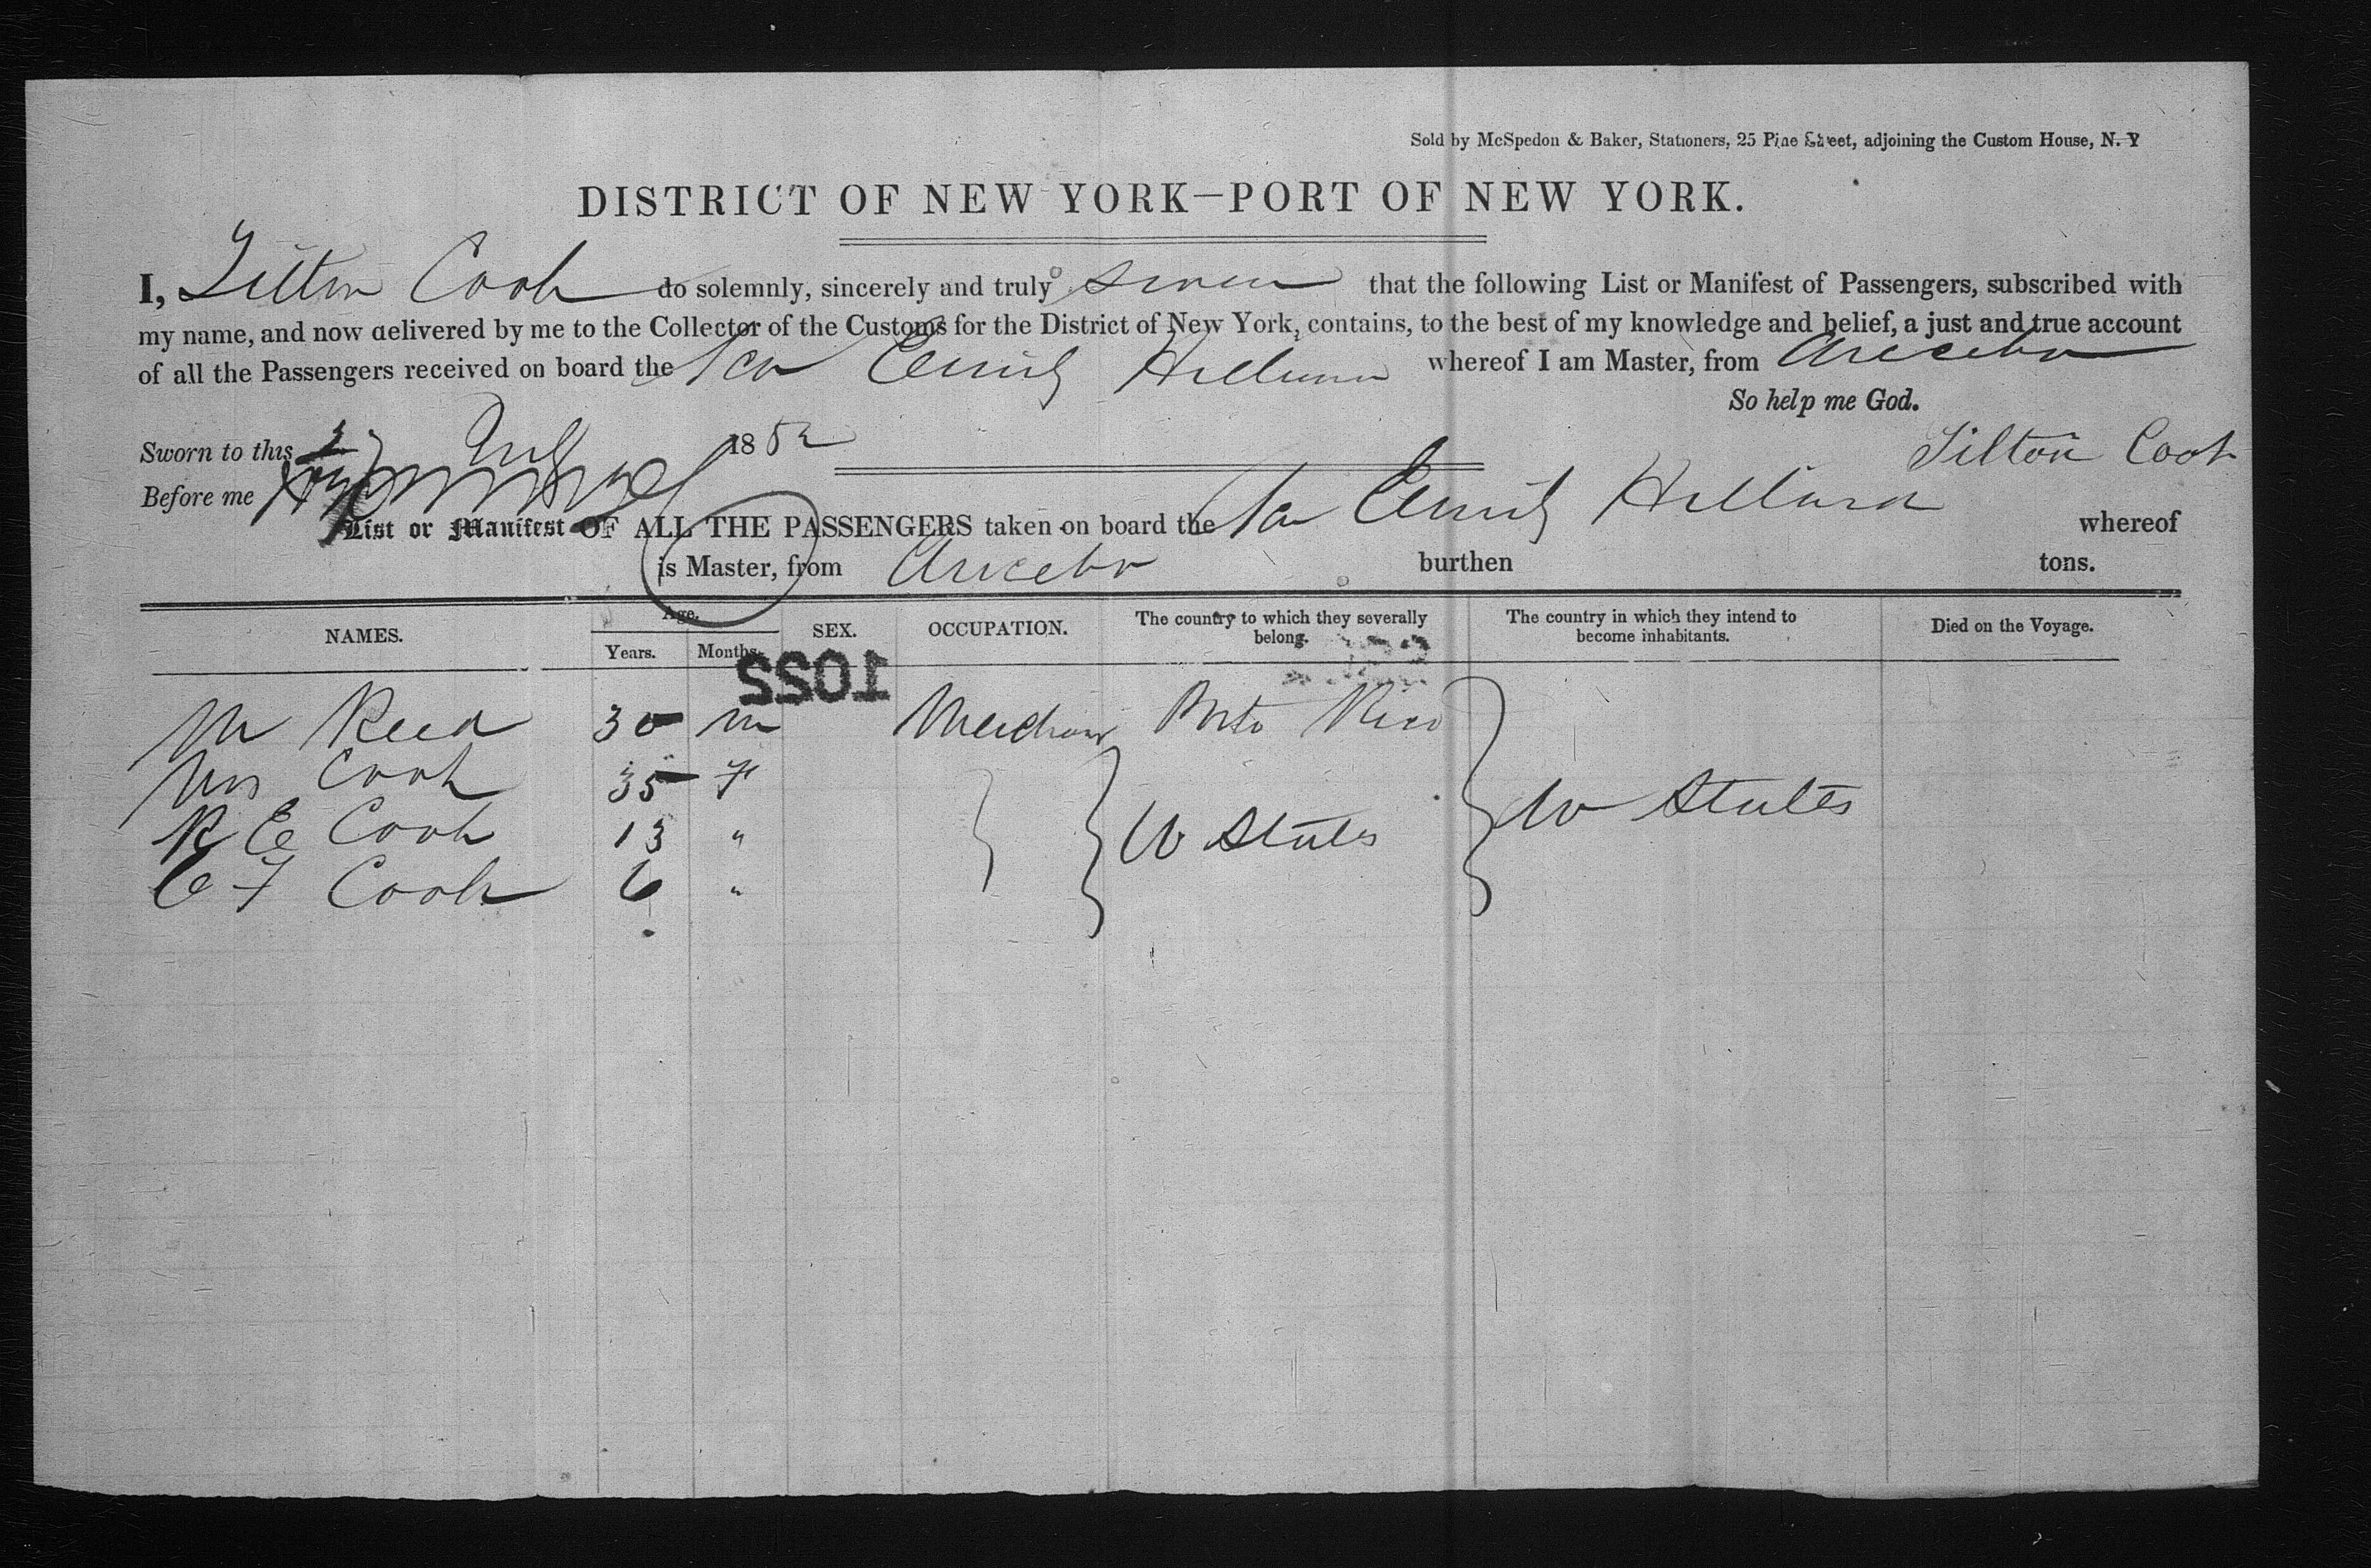 Sold by McSpedon & Baker, Stationers, 25 Pine Street, adjoining the Custom House, N. Y
DISTRICT OF NEW YORK—PORT OF NEW YORK.
I, Tilton Cook do solemnly, sincerely and truly swear that the following List or Manifest of Passengers, subscribed with
my name, and now delivered by me to the Collector of the Customs for the District of New York, contains, to the best of my knowledge and belief, a just and true account
of all the Passengers received on board the Emily Hilliard whereof I am Master, from Arecebo
So help me God.
Sworn to this 1852 Tilton Cook
Before me
List or Manifest OF ALL THE PASSENGERS taken on board the Emily Hilliard whereof
is Master, from Arecebo burthen tons.
NAMES. Age. Years. Months. SEX. OCCUPATION. The country to which they severally belong. The country in which they intend to become inhabitants. Died on the Voyage.
1022
M Reed 30 m Merchant Porto Rico
Mrs Cook 35 F
R E Cook 13 " U States U States
E F Cook 6 "